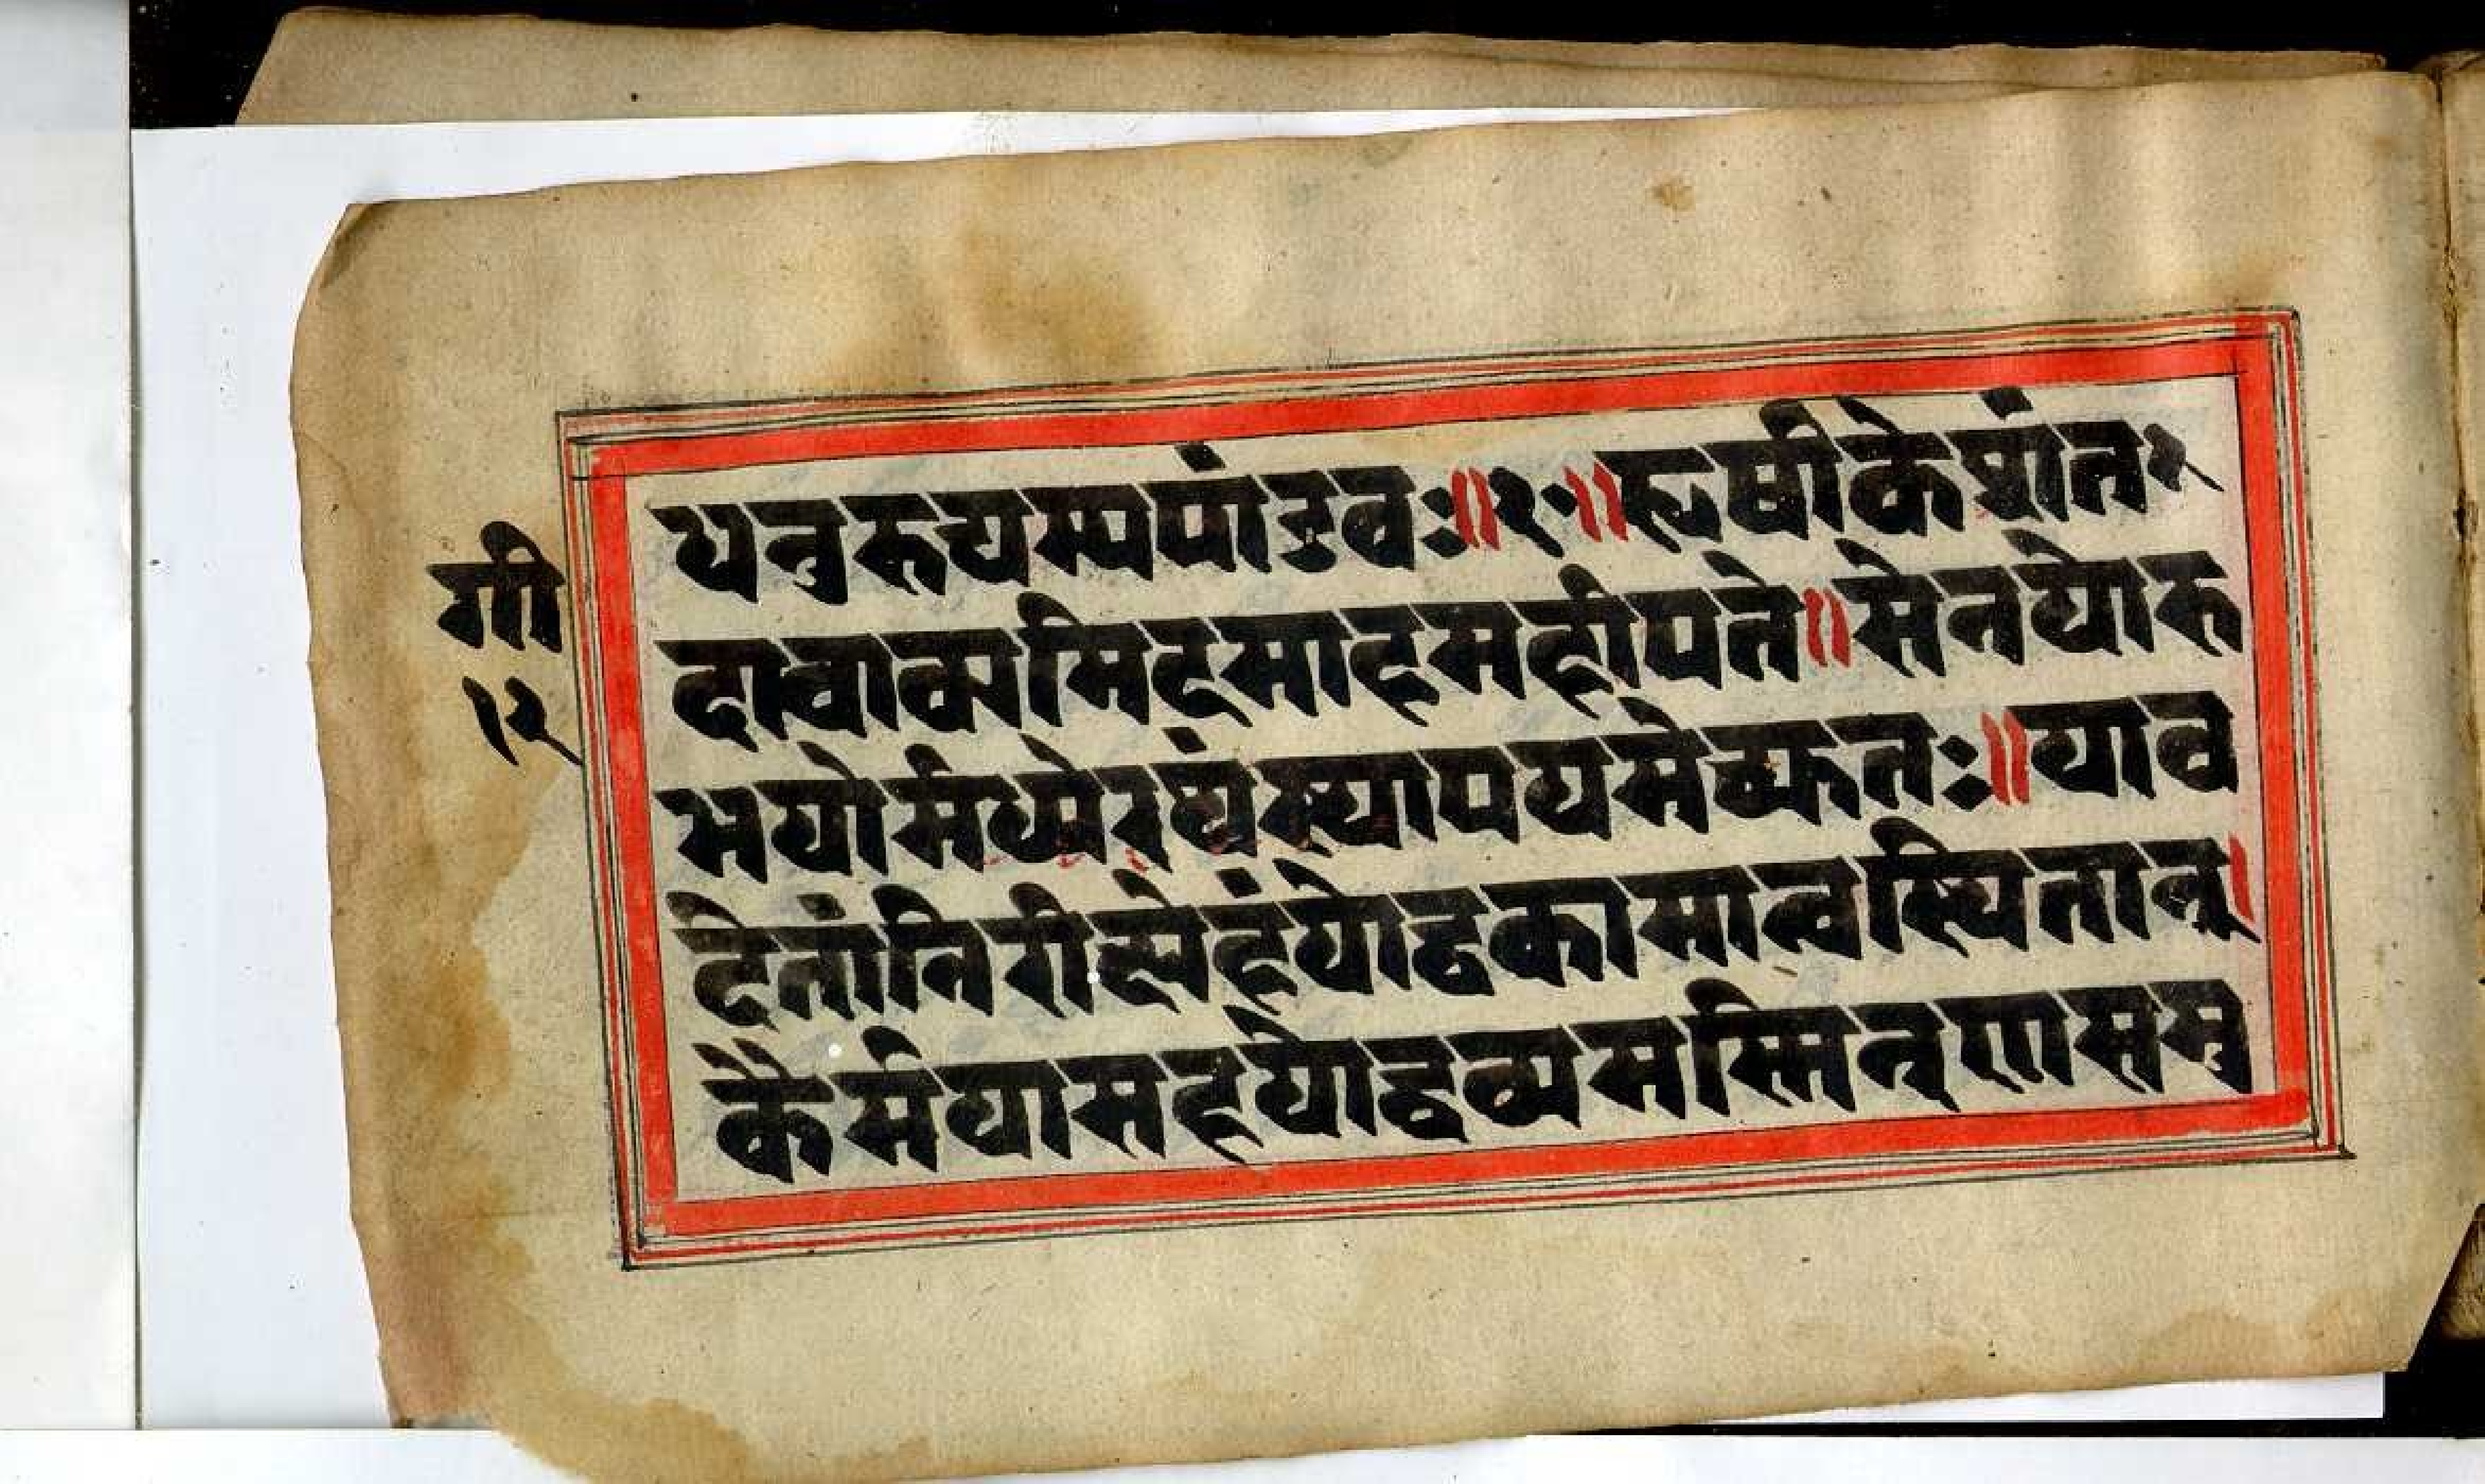 यनुरुद्यम्यपांडवः॥२॰॥हृषीकेशंत॰
दावाक्यमिदमाहमहीपते॥सेनयोरु
गी
१२
भयोर्मध्येरथंस्थापयमेच्युतः॥याव
देतांनिरीक्षेहंयोद्धकामानवस्थितान्।
कैर्मयासहयोद्धव्यमस्मिन्रणसमु